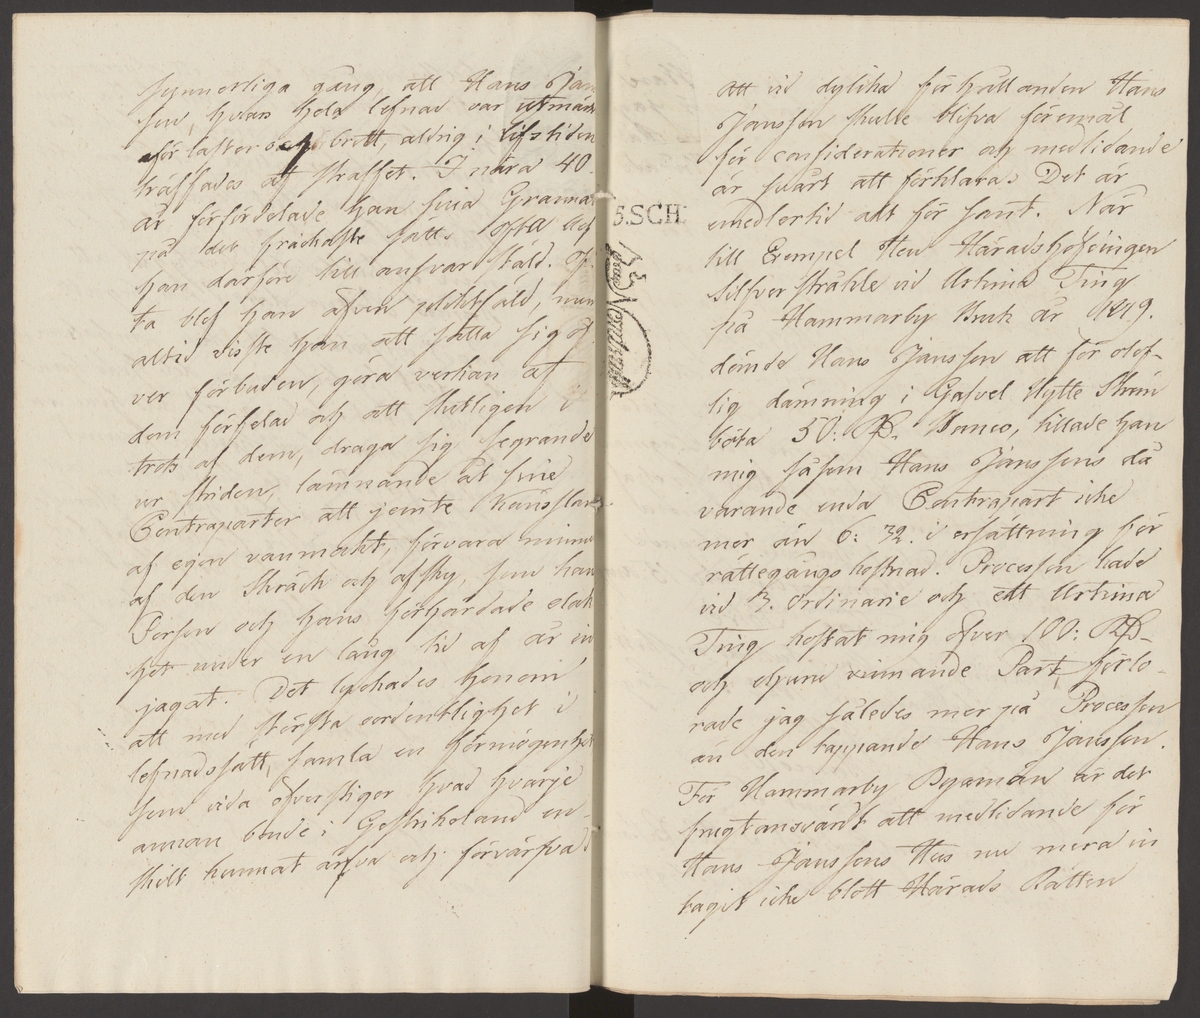 synnerliga gång, att Hans Jan
sen, hvars hela lefnad var utmärk
för laster och brott, aldrig i lifstiden
träffades af straffet. I nära 40.
år förfördelade han sina Grannar
på det fräckaste sätt. Ofta blef
han därföre till ansvar stäld. Of-
ta blef han äfven pliktfäld, men
altid visste han att sätta sig öf-
ver förbuden, göra verkan af
dem förfelad och att slutligen i
trots af dem, draga sig segrande
ur striden, lämnande åt sine
Contraparter att jemte Känslan
af egen vanmakt, förvara minne
af den Skräck och afsky, som hans
Person och hans förhärdade elak
het under en lång tid af år in
jagat. Det lyckades honom
att med största oordentlighet i
lefnadssätt, samla en förmögenhet
som vida öfverstiger hvad hvarje
annan bonde i Gestrikeland en-
skilt kunnat ärfva och förvärfva
5.SCH:
att vid dylika förhållanden Hans
Janssen skulle blifva föremål
för considerationer och medlidande
är svårt att förklara. Det är
emedlertid alt för sant. När
till Exempel Herr Häradshöfdingen
Silfverstråhle vid Urtima Ting
på Hammarby Bruk år 1819.
dömde Hans Janssen att för olof-
lig dämning i Gasvel Hytte Ström
böta 50: Rd. Banco, tillade han
mig såsom Hans Janssens då
varande enda Contrapart icke
mer än 6: 32. i ersättning för
rättegångs kostnad. Processen hade
vid 3. ordinarie och ett Urtima
Ting kostat mig öfver 100: Rd-
och ehuru vinnande Part, förlo-
rade jag således mer på Processen
än den tappande Hans Janssen.
För Hammarby Byamän är det
frugtansvärdt att medlidande för
Hans Janssens Hus nu mera in
tagit icke blott Härads Rätten